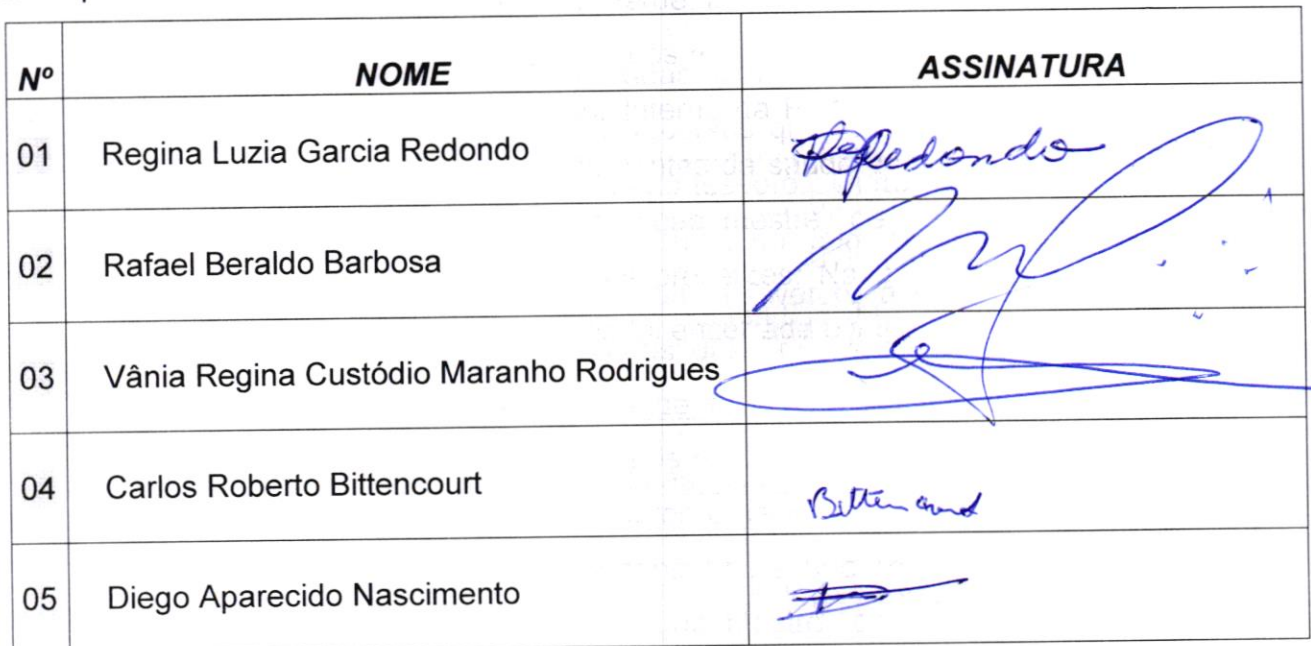 Nº NOME ASSINATURA
01 Regina Luzia Garcia Redondo Redondo
02 Rafael Beraldo Barbosa
03 Vânia Regina Custódio Maranho Rodrigues
04 Carlos Roberto Bittencourt Bittencourt
05 Diego Aparecido Nascimento